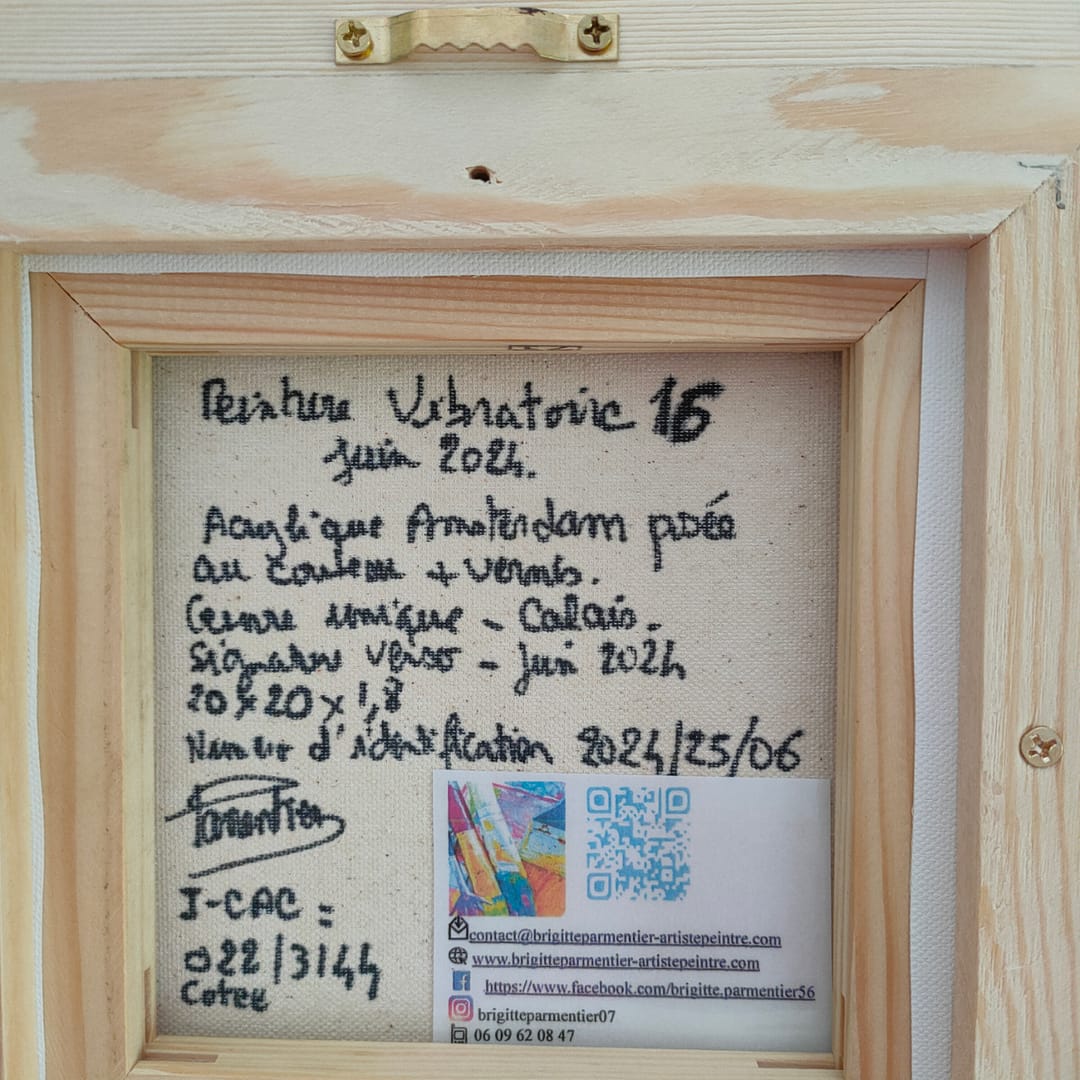 Peinture Vibratoire 16
Juin 2024.
Acrylique Amsterdam posée
au couteau + vernis.
Oeuvre unique - Calais.
Signature verso - Juin 2024
20 x 20 x 1,8
Numéro d'identification 2024/25/06
Parmentier
I-CAC :
022/3144
Cotée
contact@brigitteparmentier-artistepeintre.com
www.brigitteparmentier-artistepeintre.com
https://www.facebook.com/brigitte.parmentier56
brigitteparmentier07
06 09 62 08 47